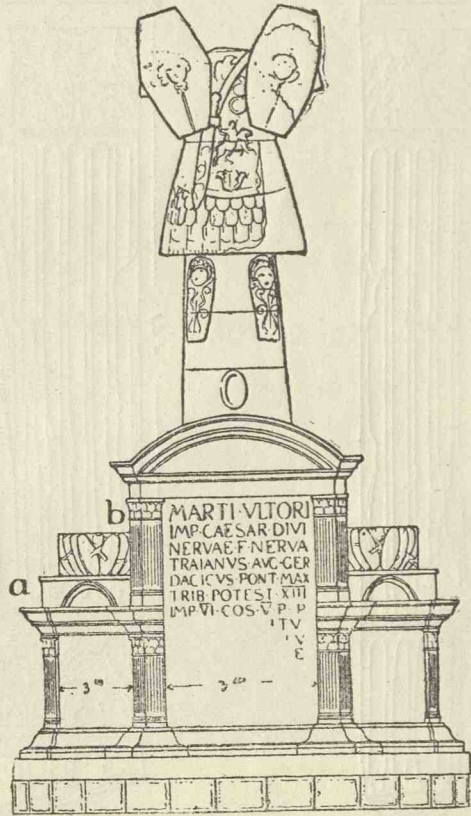 b
MARTI·VLTORI
IMP·CAESAR·DIVI
NERVAE·F·NERVA
TRAIANVS·AVG·GER
DACICVS·PONT·MAX
TRIB·POTEST·XIII
IMP·VI·COS·V·P·P
TV
V
E
a